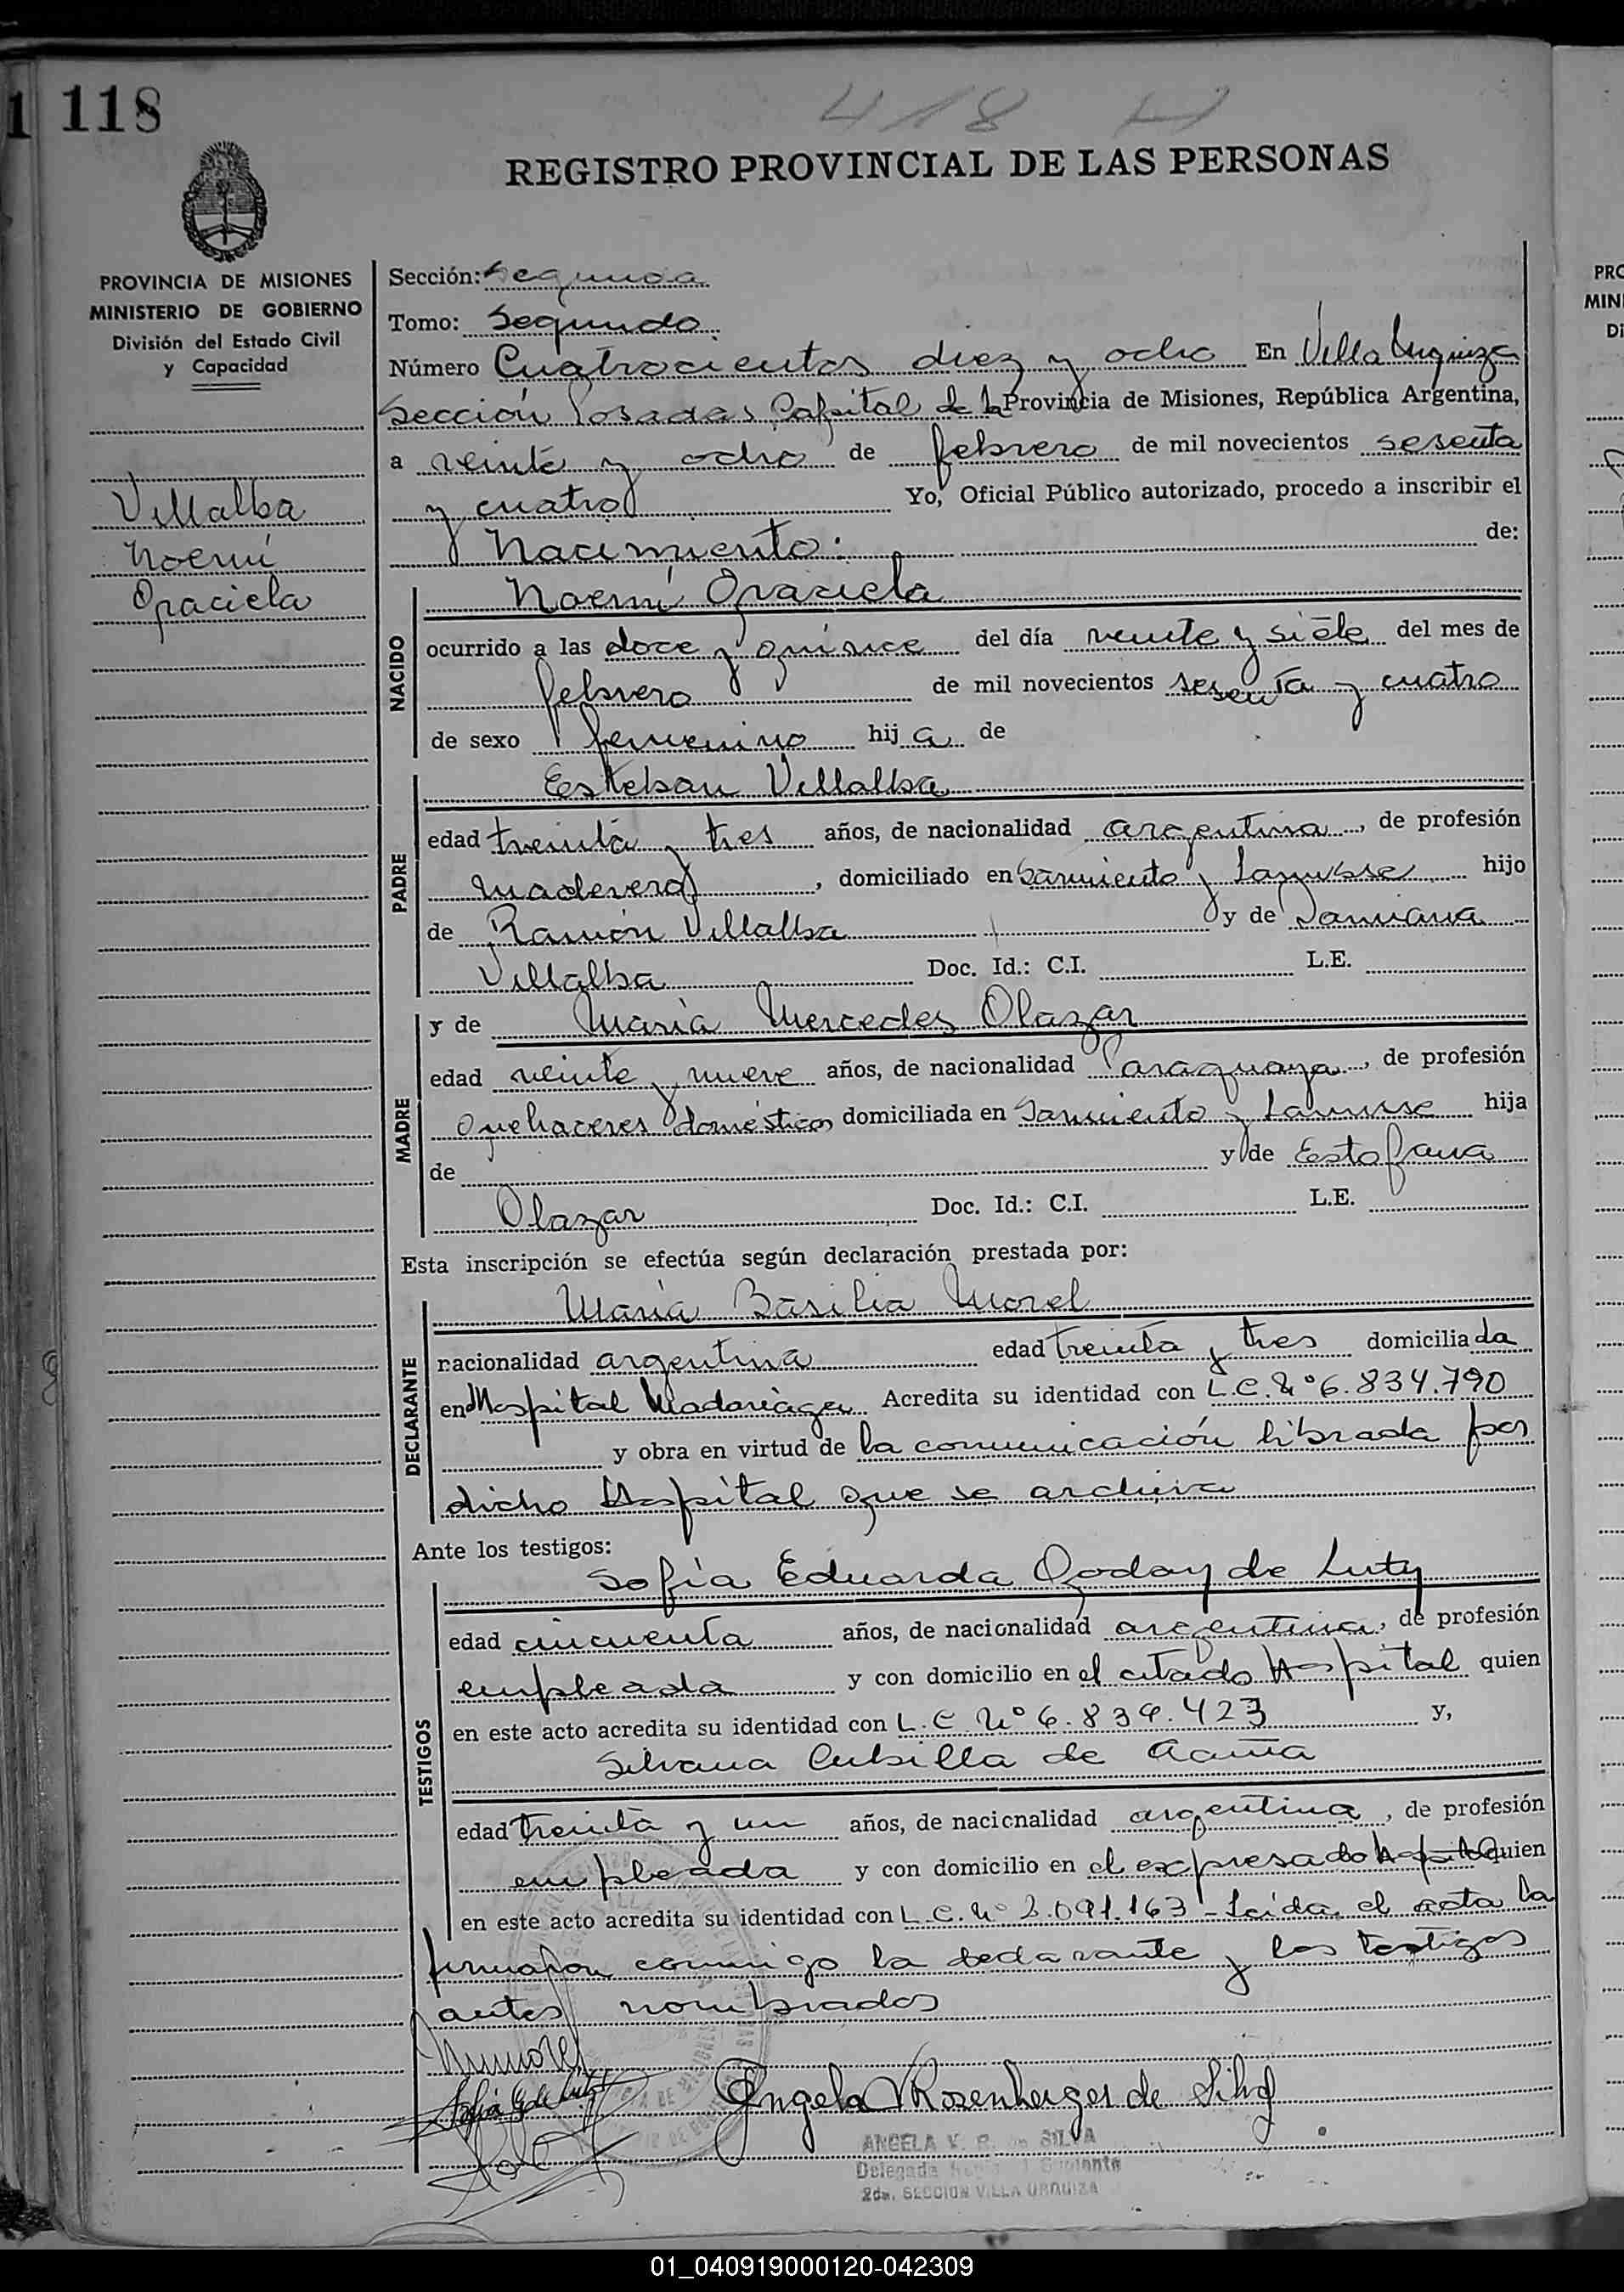 1 118
418
REGISTRO PROVINCIAL DE LAS PERSONAS
PROVINCIA DE MISIONES
MINISTERIO DE GOBIERNO
División del Estado Civil
y Capacidad
Villalba
Noemí
Graciela
Sección: Segunda
Tomo: Segundo
Número Cuatrocientos diez y ocho En Villa Urquiza
Sección Posadas Capital de la Provincia de Misiones, República Argentina,
a veinte y ocho de febrero de mil novecientos sesenta
y cuatro Yo, Oficial Público autorizado, procedo a inscribir el
Nacimiento: de:
NACIDO
Noemí Graciela
ocurrido a las doce y quince del día veinte y siete del mes de
febrero de mil novecientos sesenta y cuatro
de sexo femenino hij a de
PADRE
Esteban Villalba
edad treinta y tres años, de nacionalidad argentina, de profesión
maderero, domiciliado en Sarmiento y Lanusse hijo
de Ramón Villalba y de Damiana
Villalba Doc. Id.: C.I. L.E.
MADRE
y de María Mercedes Olazar
edad veinte y nueve años, de nacionalidad Paraguaya, de profesión
Quehaceres domésticos domiciliada en Sarmiento y Lanusse hija
de y de Estofana
Olazar Doc. Id.: C.I. L.E.
Esta inscripción se efectúa según declaración prestada por:
DECLARANTE
María Basilia Morel
nacionalidad argentina edad treinta y tres domiciliada
en Hospital Madariaga Acredita su identidad con L.C. Nº 6.834.790
y obra en virtud de la comunicación librada por
dicho Hospital que se archiva
Ante los testigos:
TESTIGOS
Sofía Eduarda Godoy de Luty
edad cincuenta años, de nacionalidad argentina, de profesión
empleada y con domicilio en el citado Hospital quien
en este acto acredita su identidad con L.C. Nº 6.839.423 y,
Silvana Cubilla de Acuña
edad treinta y un años, de nacionalidad argentina, de profesión
empleada y con domicilio en el expresado Hospital quien
en este acto acredita su identidad con L.C. Nº 2.091.163 - Leída el acta la
firmaron conmigo la declarante y los testigos
antes nombrados
Angela V Rosenberger de Silva
ANGELA V. R. de SILVA
Delegada Suplente
2da. SECCION VILLA URQUIZA
PRO
MIN
Di
01_040919000120-042309